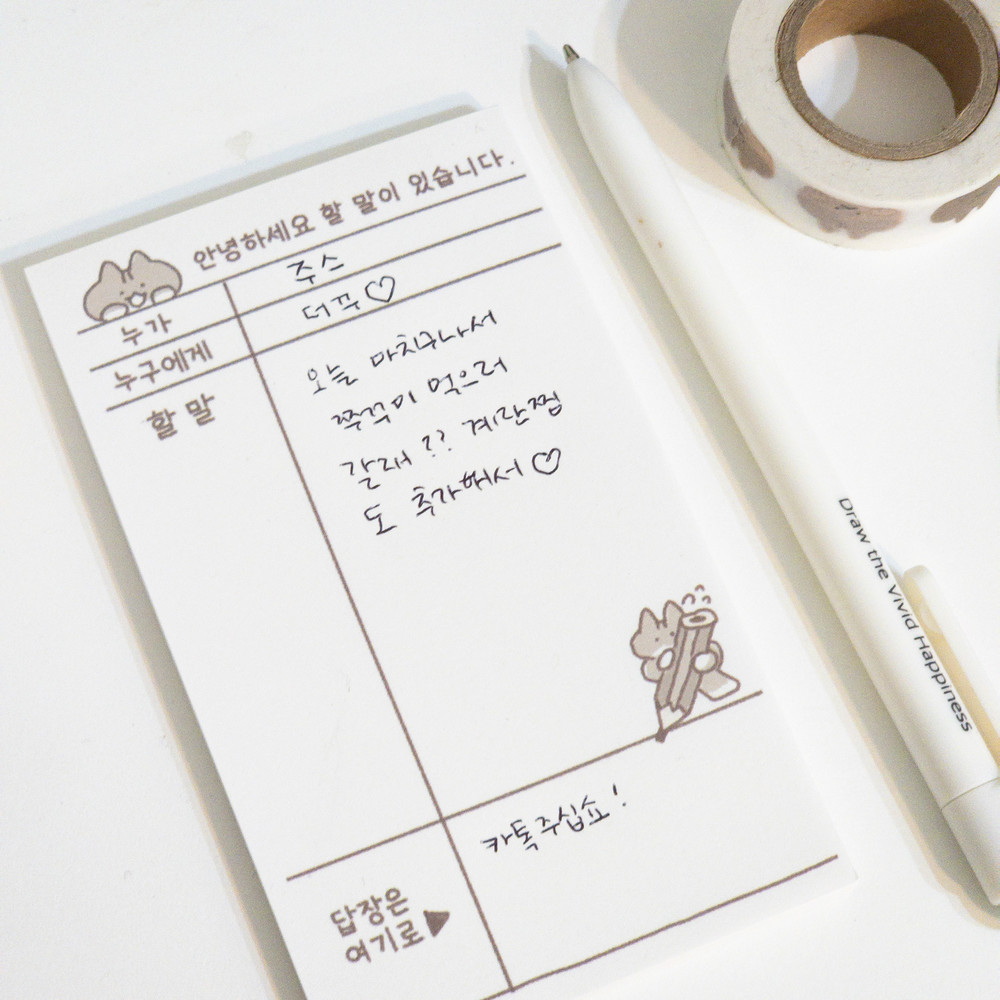 안녕하세요 할 말이 있습니다.
누가
주스
누구에게
더꾸♡
할 말
오늘 마치구나서
쭈꾸미 먹으러
갈래?? 계란찜
도 추가해서♡
카톡주십쇼!
답장은
여기로▶
Draw the Vivid Happiness